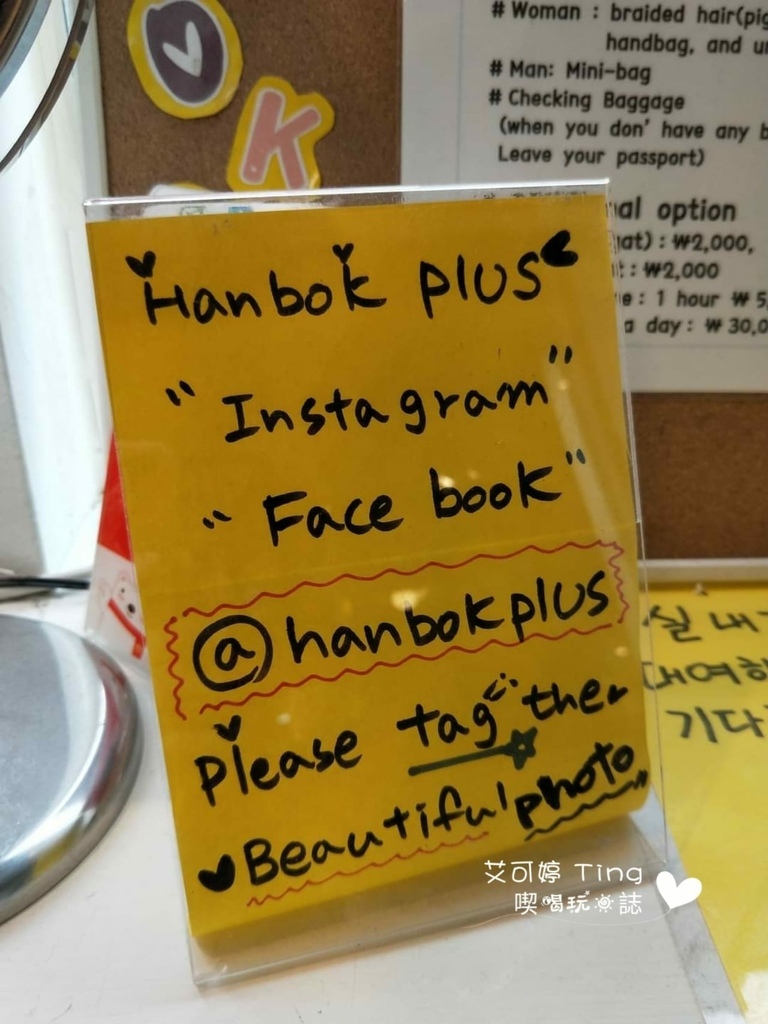 OK
# Woman : braided hair(pig
handbag, and
# Man: Mini-bag
# Checking Baggage
(when you don' have any b
Leave your passport)
option
: ₩2,000,
: ₩2,000
: 1 hour ₩ 5,
a day: ₩ 30,0
Hanbok plus
"Instagram"
"Face book"
@hanbokplus
Please tag the
Beautiful photo
실 내
대여하
기다
艾可婷 Ting
喫喝玩誌